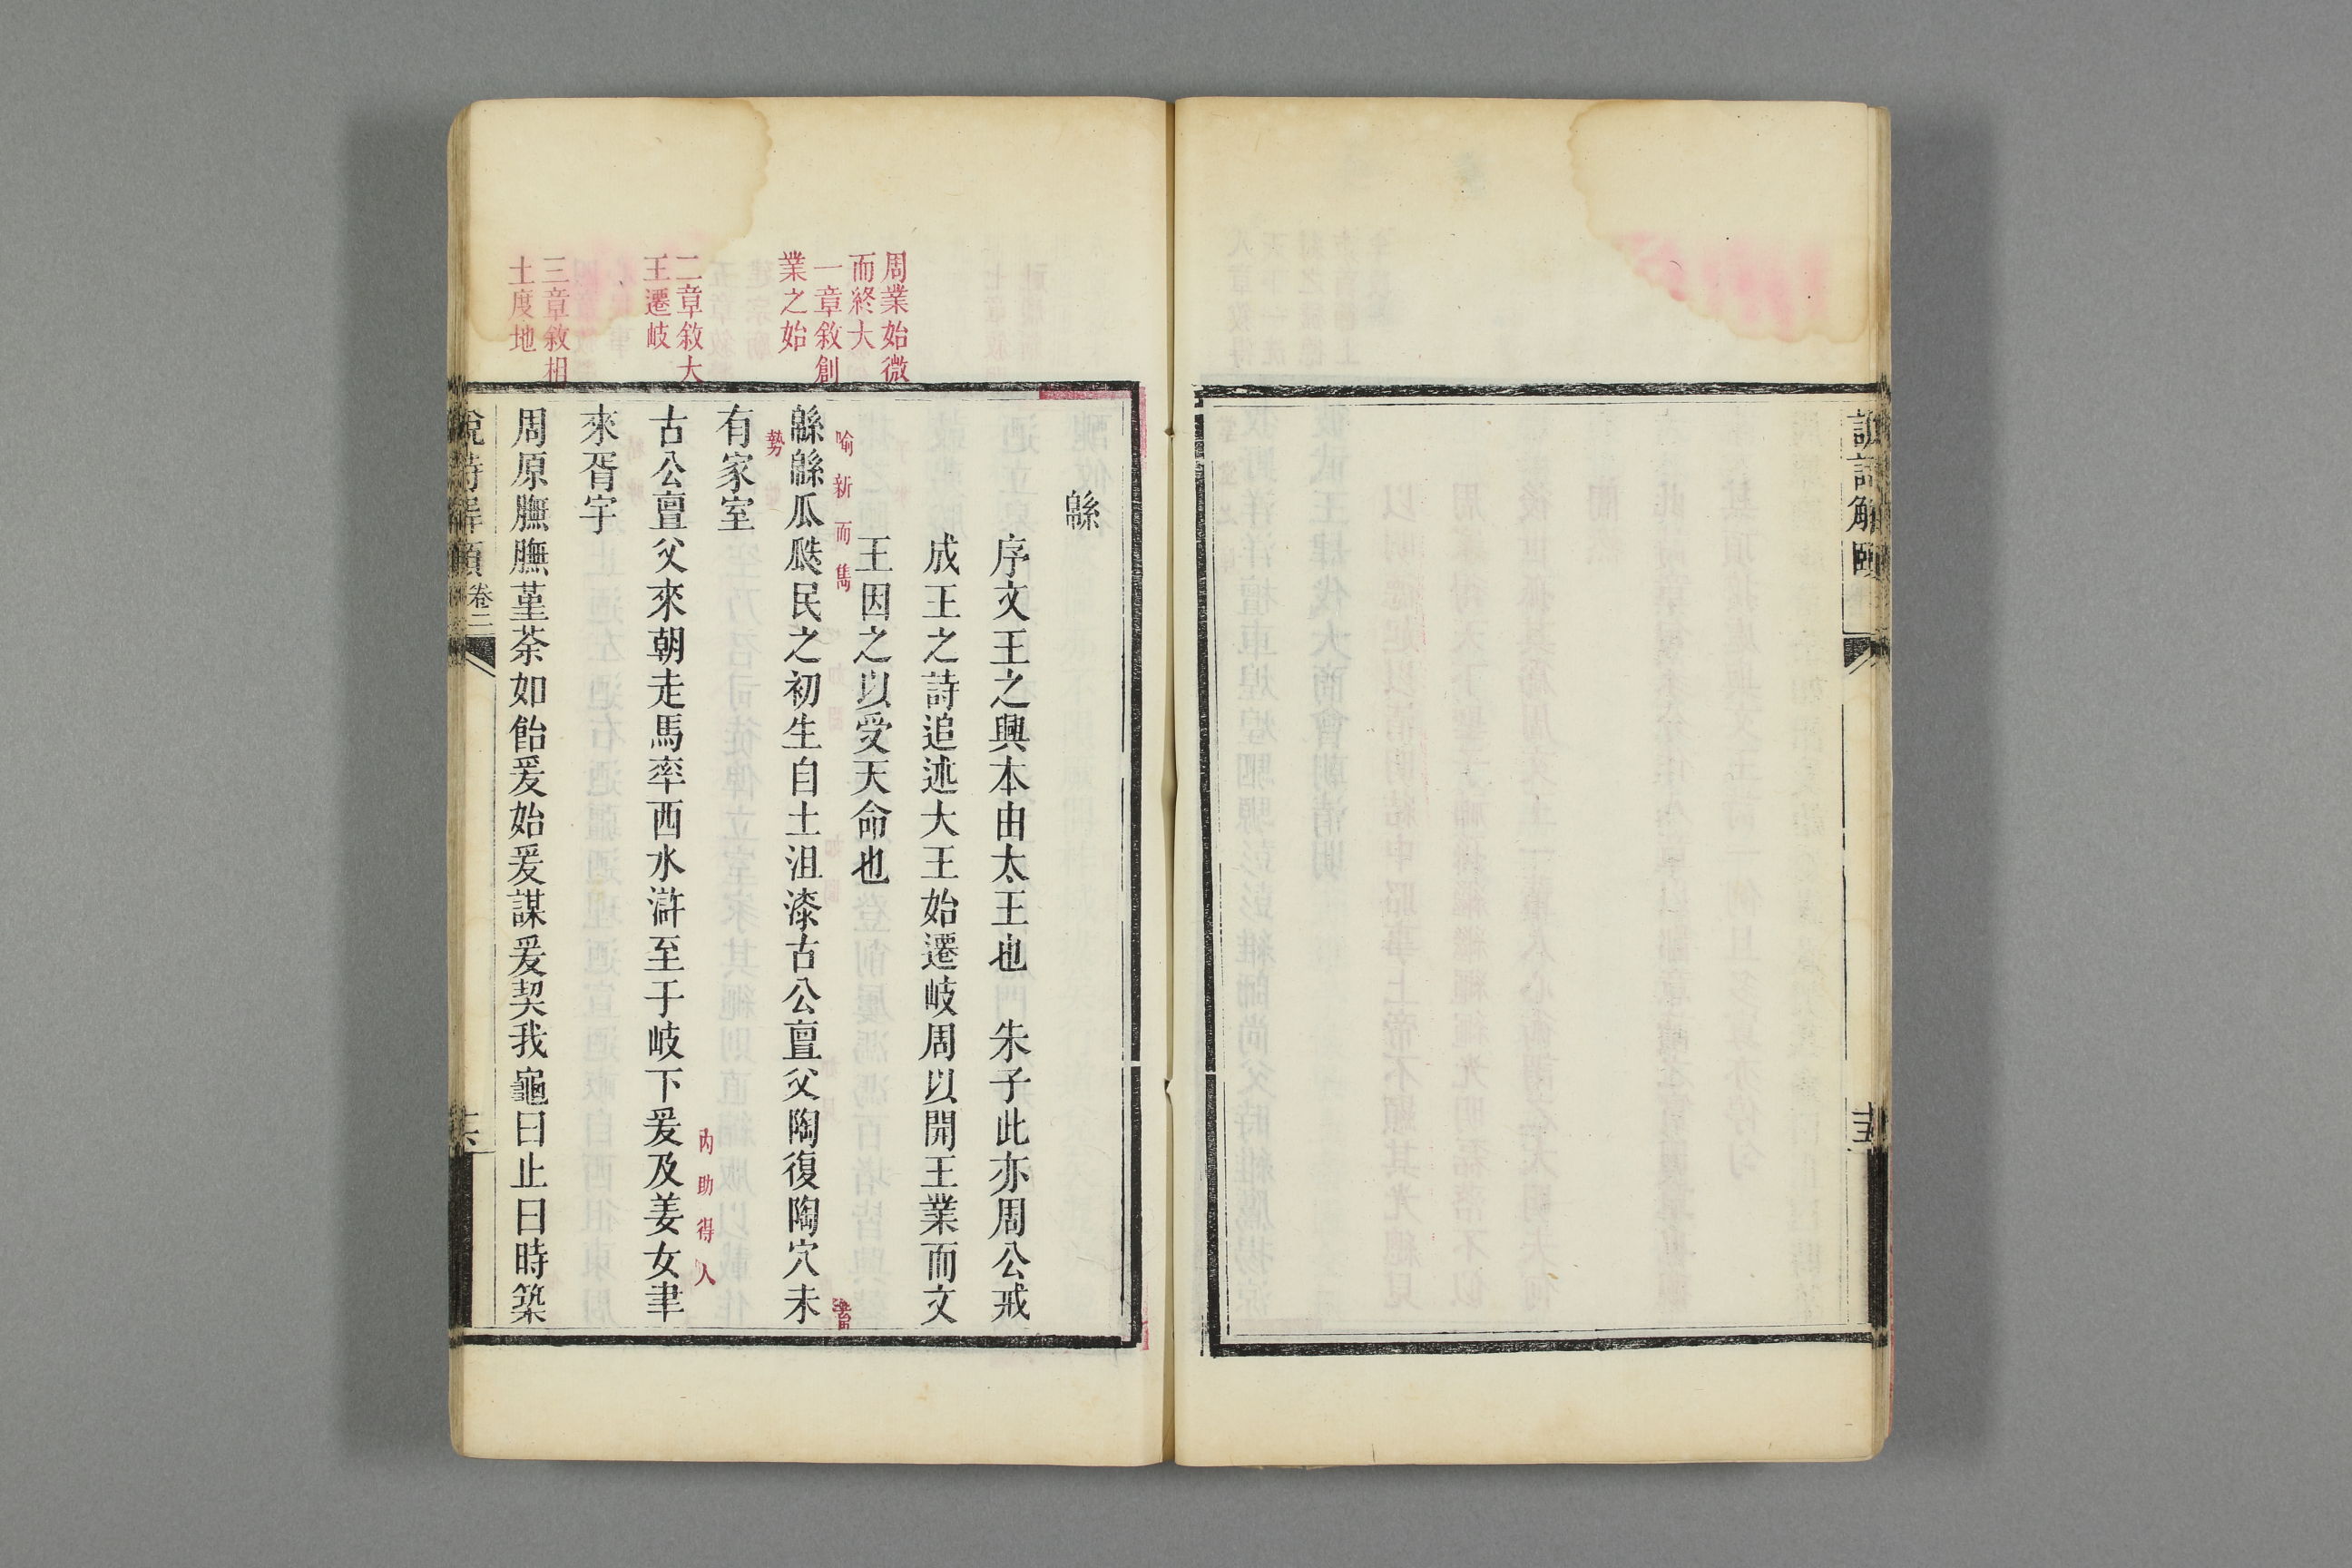 周業始微
而終大
一章敘創
業之始
二章敘大
王遷岐
三章敘相
土度地
緜
序文王之興本由太王也 朱子此亦周公戒
成王之詩追述大王始遷岐周以開王業而文
王因之以受天命也
喻新而雋
緜緜瓜瓞民之初生自土沮漆古公亶父陶復陶穴未
勢
有家室
內助得人
古公亶父來朝走馬率西水滸至于岐下爰及姜女聿
來胥宇
周原膴膴堇荼如飴爰始爰謀爰契我龜曰止曰時築
說詩解頤
卷二